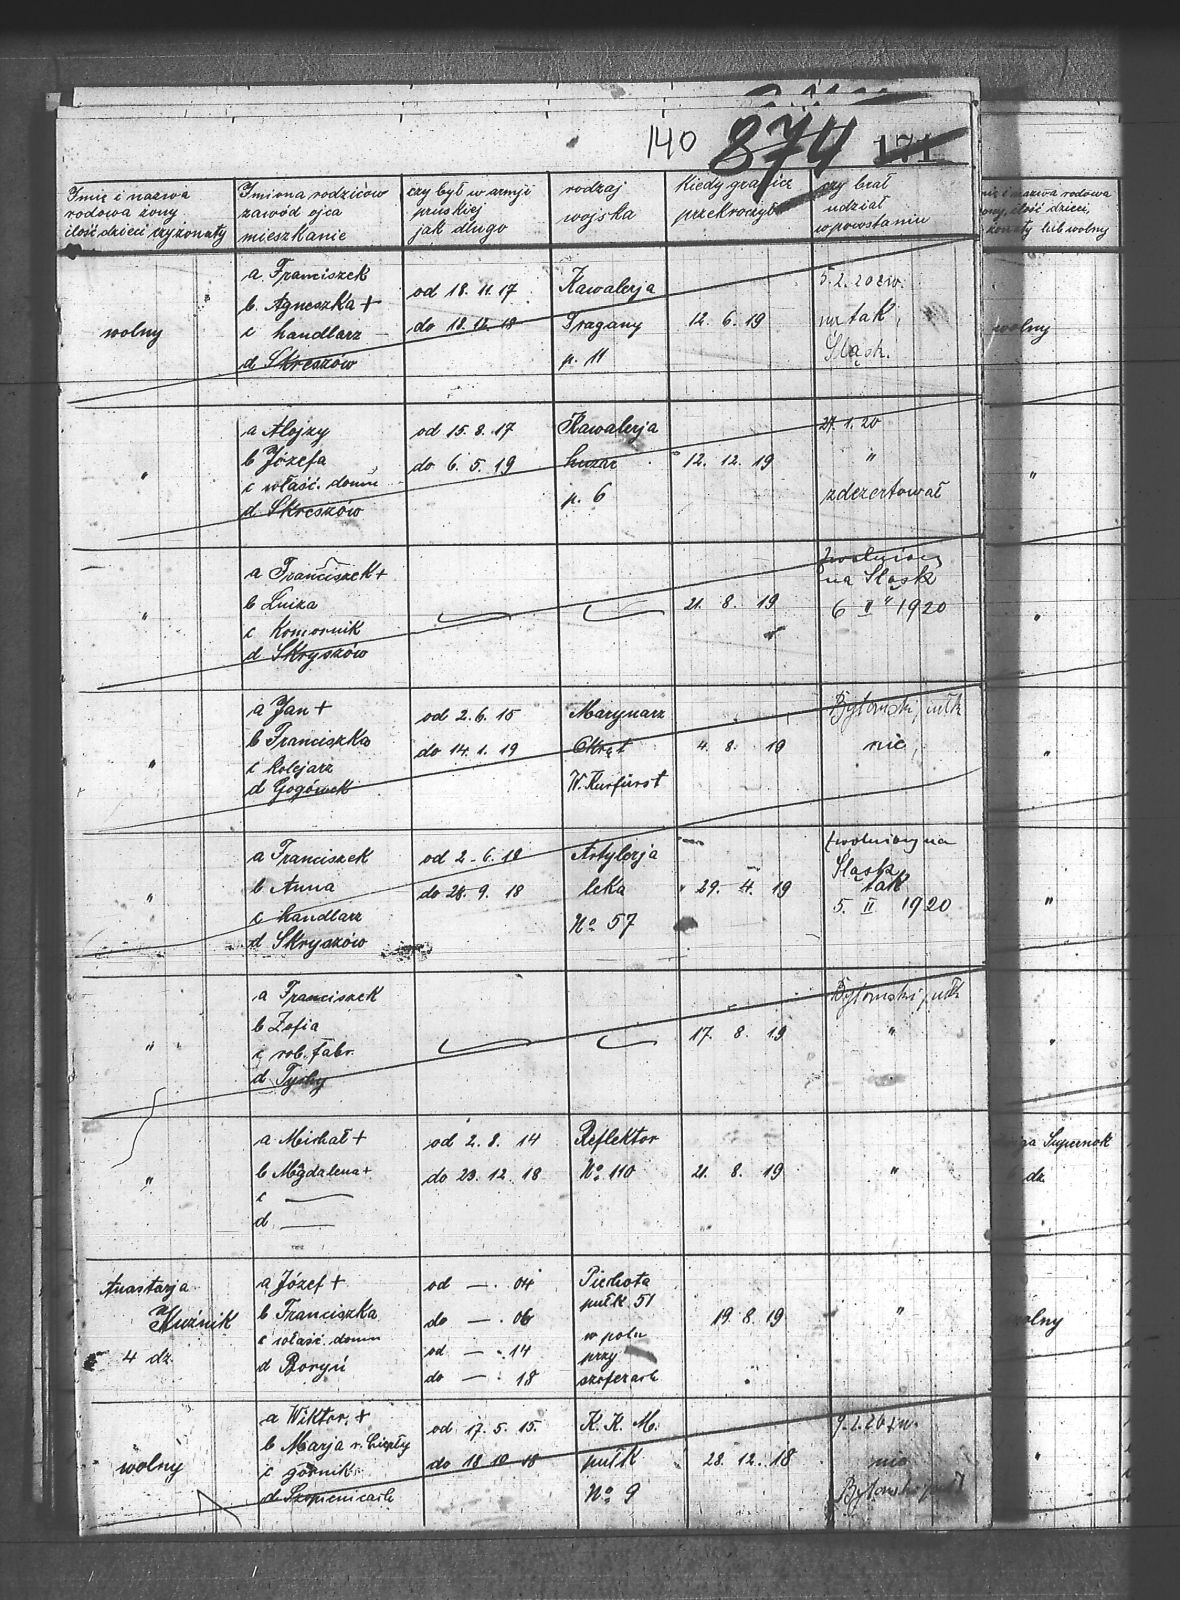 140 874 171
Imię i nazwa
rodowa żony
ilość dzieci czy żonaty
Imiona rodziców
zawód ojca
mieszkanie
czy był w armji
pruskiej
jak długo
rodzaj
wojska
kiedy granicę
przekroczył
czy brał
udział
w powstaniu
nazwa rodowa
żony, ilość dzieci,
żonaty lub wolny
wolny
a Franciszek
b Agnieszka +
c handlarz
d Skreszów
od 18. 11. 17
do 18. 12. 18
Kawalerja
Dragany
p. 11
12. 6. 19
5. 2. 20 zw.
na tak,
Śląsk.
wolny
"
a Alojzy
b Józefa
c właść. domu
d Skreszów
od 15. 8. 17
do 6. 5. 19
Kawalerja
huzar
p. 6
12. 12. 19
27. 1. 20
"
zdezertował
"
"
a Franciszek +
b Luiza
c Komornik
d Skryszów
21. 8. 19
zwolniony
na Śląsk
6 II " 1920
"
"
a Jan +
b Franciszka
c kolejarz
d Gogówek
od 2. 6. 15
do 14. 1. 19
Marynarz
Okręt
W. Kurfürst
4. 8. 19
Bytomski pułk
nie,
"
"
a Franciszek
b Anna
c handlarz
d Skryszów
od 2. 6. 18
do 28. 9. 18
Artylerja
leka
No 57
29. 4. 19
zwolniony na
Śląsk
tak
5. II 1920
"
"
a Franciszek
b Zofia
c rob. fabr.
d Tychy
17. 8. 19
Bytomski pułk
"
"
"
a Michał +
b Magdalena +
c —
d —
od 2. 8. 14
do 23. 12. 18
Reflektor
No. 110
21. 8. 19
"
Supernok
dz.
Anastazja
Kuźnik
4 dz.
a Józef +
b Franciszka
c właść. domu
d Boryń
od — . 04
do — . 06
od — . 14
do — . 18
Piechota
pułk 51
w polu
przy
szoferach
19. 8. 19
"
wolny
wolny
a Wiktor, +
b Marja r.
c górnik
d Szopienicach
od 17. 5. 15.
do 18 10 18
K. K. M.
pułk
No 9
28. 12. 18
9. 2. 20 zw.
nie
Bytomski pułk
"